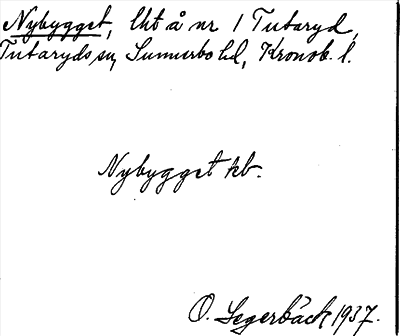 Nybygget, lht å nr 1 Tutaryd,
Tutaryds sn, Sunnerbo hd, Kronob. l.
Nybygget kb.
O. Segerbäck 1937.